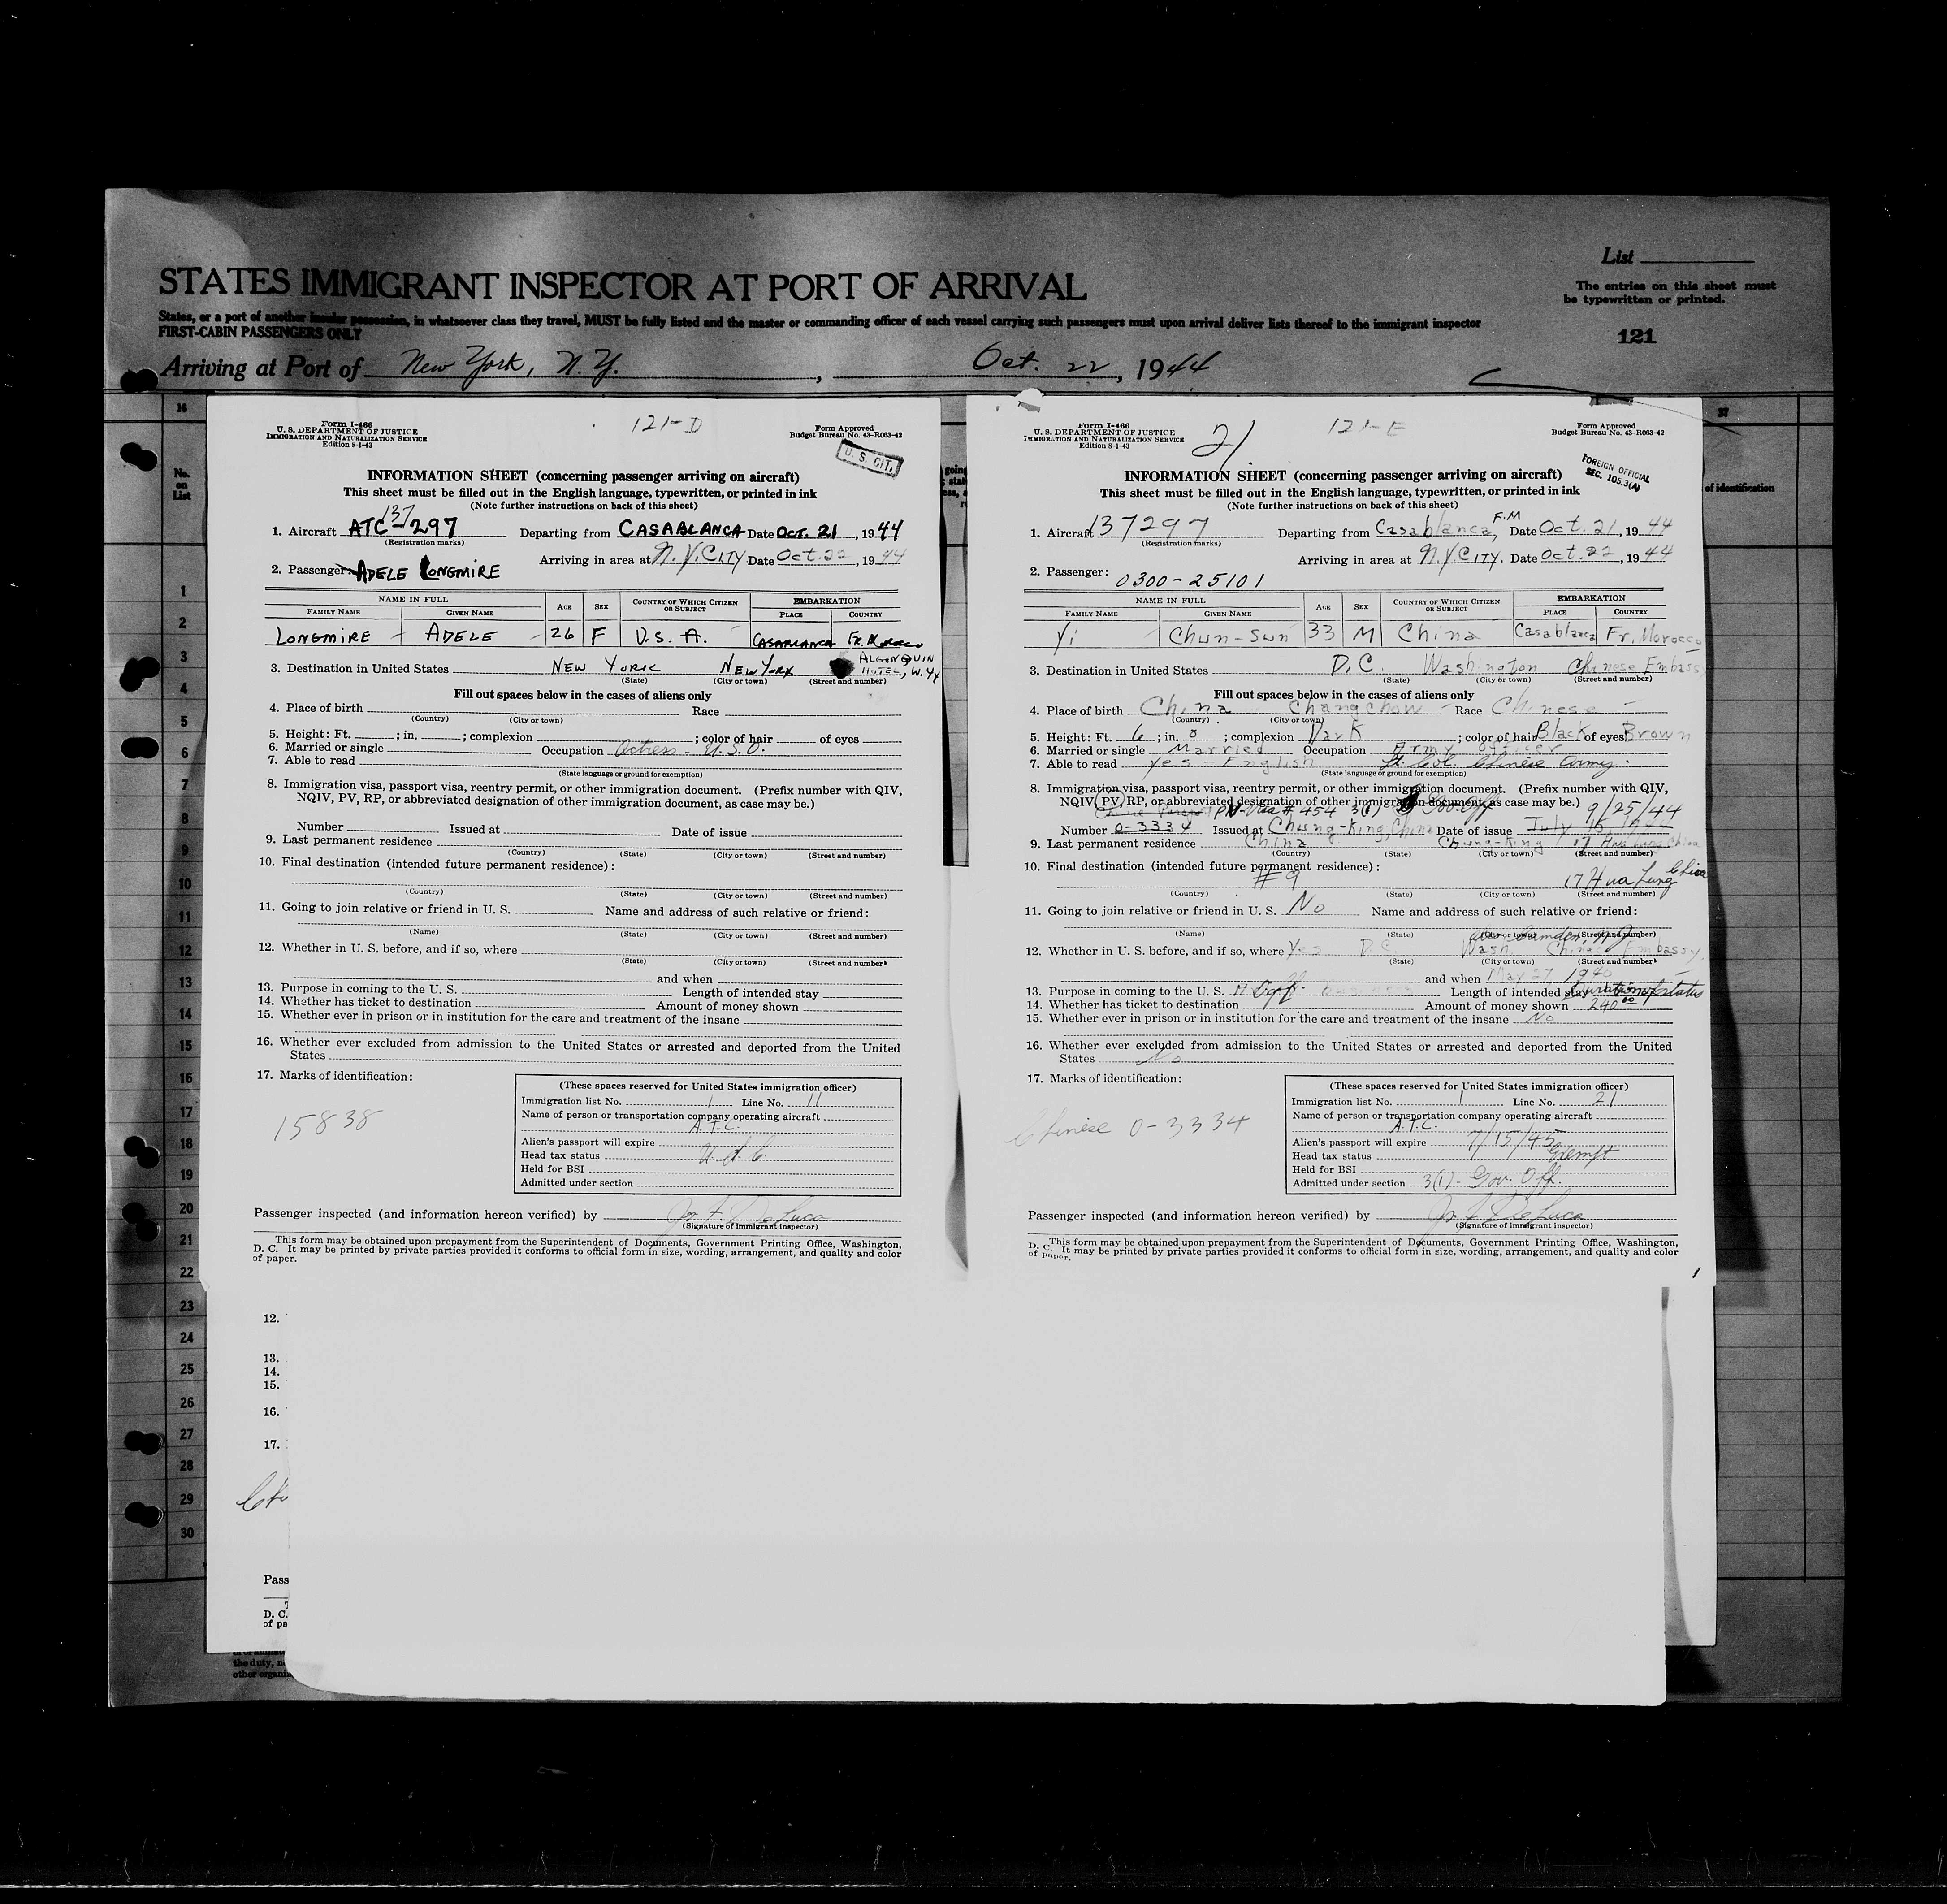 List
STATES IMMIGRANT INSPECTOR AT PORT OF ARRIVAL
The entries on this sheet must
be typewritten or printed.
States, or a port of another insular possession, in whatsoever class they travel, MUST be fully listed and the master or commanding officer of each vessel carrying such passengers must upon arrival deliver lists thereof to the immigrant inspector
FIRST-CABIN PASSENGERS ONLY
121
Arriving at Port of New York, N.Y., Oct. 22, 1944
16
37
No.
on
List
of identification
1
2
3
4
5
6
7
8
9
10
11
12
13
14
15
16
17
18
19
20
21
22
23
24
25
26
27
28
29
30
121-D
Form I-466
U. S. DEPARTMENT OF JUSTICE
IMMIGRATION AND NATURALIZATION SERVICE
Edition 8-1-43
Form Approved
Budget Bureau No. 43-R063-42
U. S. CIT.
INFORMATION SHEET (concerning passenger arriving on aircraft)
This sheet must be filled out in the English language, typewritten, or printed in ink
(Note further instructions on back of this sheet)
137
1. Aircraft ATC-297 Departing from CASABLANCA Date OCT. 21, 1944
(Registration marks)
Arriving in area at N.Y.CITY Date Oct. 22, 1944
2. Passenger: ADELE LONGMIRE
NAME IN FULL AGE SEX COUNTRY OF WHICH CITIZEN OR SUBJECT EMBARKATION
FAMILY NAME GIVEN NAME PLACE COUNTRY
LONGMIRE - ADELE - 26 F U.S.A. CASABLANCA Fr. Morocco
3. Destination in United States NEW YORK NEW YORK ALGONQUIN HOTEL, N.Y.
(State) (City or town) (Street and number)
Fill out spaces below in the cases of aliens only
4. Place of birth Race
(Country) (City or town)
5. Height: Ft. ; in. ; complexion ; color of hair of eyes
6. Married or single Occupation Actress - U.S.O.
7. Able to read
(State language or ground for exemption)
8. Immigration visa, passport visa, reentry permit, or other immigration document. (Prefix number with QIV,
NQIV, PV, RP, or abbreviated designation of other immigration document, as case may be.)
Number Issued at Date of issue
9. Last permanent residence
(Country) (State) (City or town) (Street and number)
10. Final destination (intended future permanent residence):
(Country) (State) (City or town) (Street and number)
11. Going to join relative or friend in U. S. Name and address of such relative or friend:
(Name) (State) (City or town) (Street and number)
12. Whether in U. S. before, and if so, where
(State) (City or town) (Street and number)
and when
13. Purpose in coming to the U. S. Length of intended stay
14. Whether has ticket to destination Amount of money shown
15. Whether ever in prison or in institution for the care and treatment of the insane
16. Whether ever excluded from admission to the United States or arrested and deported from the United
States
17. Marks of identification:
15838
(These spaces reserved for United States immigration officer)
Immigration list No. 1 Line No. 11
Name of person or transportation company operating aircraft
A.T.C.
Alien's passport will expire
Head tax status U.S.C.
Held for BSI
Admitted under section
Passenger inspected (and information hereon verified) by Jos. F. DeLuca
(Signature of immigrant inspector)
This form may be obtained upon prepayment from the Superintendent of Documents, Government Printing Office, Washington,
D. C. It may be printed by private parties provided it conforms to official form in size, wording, arrangement, and quality and color
of paper.
21
121-E
Form I-466
U. S. DEPARTMENT OF JUSTICE
IMMIGRATION AND NATURALIZATION SERVICE
Edition 8-1-43
Form Approved
Budget Bureau No. 43-R063-42
FOREIGN OFFICIAL
SEC. 105.3(A)
INFORMATION SHEET (concerning passenger arriving on aircraft)
This sheet must be filled out in the English language, typewritten, or printed in ink
(Note further instructions on back of this sheet)
1. Aircraft 137297 Departing from Casablanca, F.M Date Oct. 21, 1944
(Registration marks)
Arriving in area at N.Y CITY. Date Oct. 22, 1944
2. Passenger: 0300-25101
NAME IN FULL AGE SEX COUNTRY OF WHICH CITIZEN OR SUBJECT EMBARKATION
FAMILY NAME GIVEN NAME PLACE COUNTRY
Yi Chun-Sun 33 M China Casablanca Fr. Morocco
3. Destination in United States D.C. Washington Chinese Embassy
(State) (City or town) (Street and number)
Fill out spaces below in the cases of aliens only
4. Place of birth China Changchow Race Chinese
(Country) (City or town)
5. Height: Ft. 6; in. 0; complexion Dark; color of hair Black of eyes Brown
6. Married or single Married Occupation Army Officer
7. Able to read yes - English Lt. Col. Chinese Army.
(State language or ground for exemption)
8. Immigration visa, passport visa, reentry permit, or other immigration document. (Prefix number with QIV,
NQIV, PV, RP, or abbreviated designation of other immigration document, as case may be.)
PV Visa # 454 3(1) Gov. Off 9/25/44
Number 0-3334 Issued at Chung-King, China Date of issue July 15,
9. Last permanent residence China Chung-King 17
(Country) (State) (City or town) (Street and number)
10. Final destination (intended future permanent residence):
#9 17 Hua Lung China
(Country) (State) (City or town) (Street and number)
11. Going to join relative or friend in U. S. No Name and address of such relative or friend:
(Name) (State) (City or town) (Street and number)
Camden, N.J.
12. Whether in U. S. before, and if so, where Yes D.C. Wash Chinese Embassy
(State) (City or town) (Street and number)
and when May 27, 1940
13. Purpose in coming to the U. S. Length of intended stay duration of status
14. Whether has ticket to destination Amount of money shown 240.00
15. Whether ever in prison or in institution for the care and treatment of the insane No
16. Whether ever excluded from admission to the United States or arrested and deported from the United
States No
17. Marks of identification:
Chinese 0-3334
(These spaces reserved for United States immigration officer)
Immigration list No. 1 Line No. 21
Name of person or transportation company operating aircraft
A.T.C.
Alien's passport will expire 7/15/45
Head tax status Exempt
Held for BSI
Admitted under section 3(1)- Gov. Off.
Passenger inspected (and information hereon verified) by Jos. F. DeLuca
(Signature of immigrant inspector)
This form may be obtained upon prepayment from the Superintendent of Documents, Government Printing Office, Washington,
D. C. It may be printed by private parties provided it conforms to official form in size, wording, arrangement, and quality and color
of paper.
12.
13.
14.
15.
16.
17.
Pass
D. C.
of pa
the duty, n
other organi